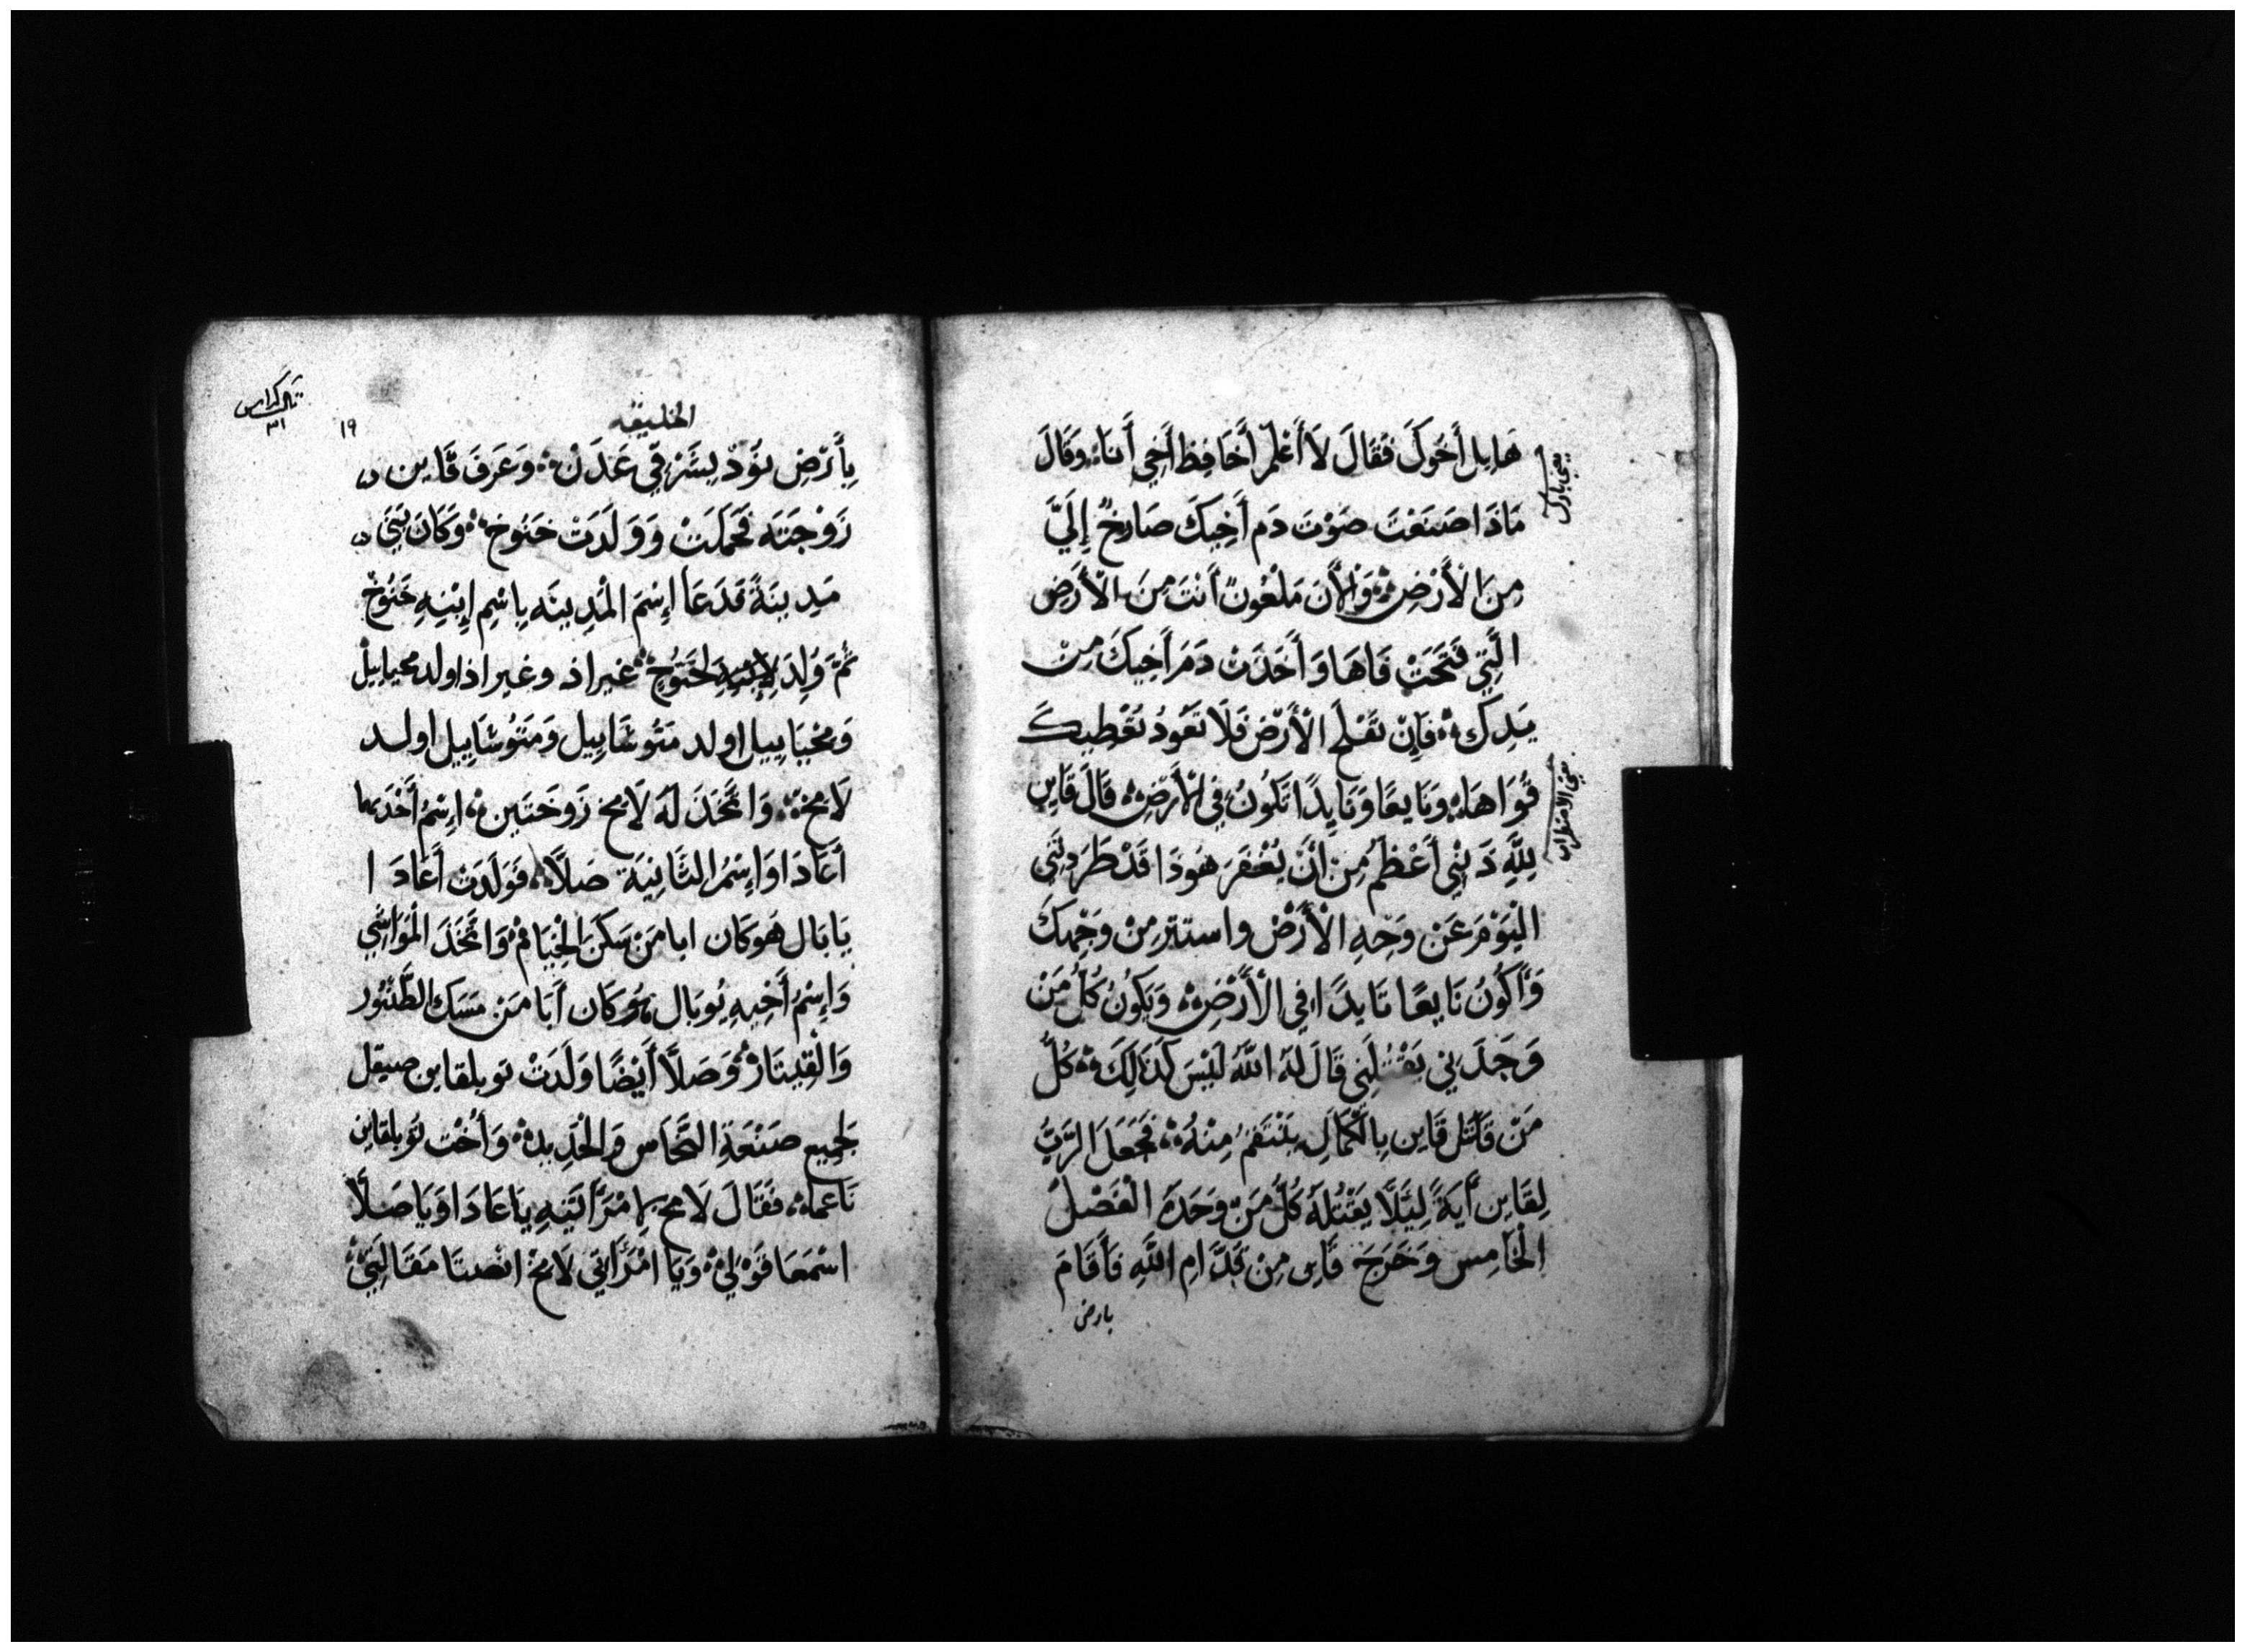 هَابِل أَخُوكَ فَقَالَ لَا أَعْلَمْ أَحَافِظ أَخِي أَنَا؞ وَقَالَ
مَاذَا صَنَعْتَ صَوْتَ دَم أَخِيكَ صَارِخٌ إِلَيَّ
مِنَ الْأَرْضِ؞ وَالْأَنَ مَلْعُونٌ أَنْتَ مِنَ الْأَرَضِ
الَّتِي فَتَحَتْ فَاهَا وَأَخَذَتْ دَمَ أَخِيكَ مِنْ
يَدِكَ؞ فَإِنْ تَفْلَحِ الْأَرْضَ فَلَا تَعُودُ تُعْطِيكَ
قُوَاهَا؞ وَنَايعًا وَنَايِدًا تَكُونُ فِي الْأَرْضِ؞ قَالَ قَايِن
لِلَّهِ ذَنْبِي أَعْظَمُ مِنْ أَنْ يُغْفَرَ هُوَذَا قَدْ طَرَدتَنِي
الْيَوْمَ عَنْ وَجْهِ الْأَرْضْ واستتر مِنْ وَجْهِكَ
وَأَكُونُ نَايعًا نَايدًا فِي الْأَرْضِ؞ وَيَكُونُ كُلُ مَنْ
وَجَدَنِي يَقْتُلَنِي قَالَ لَهُ اللَّهُ لَيْسَ كَذَالِكَ؞ كُلُّ
مَنْ قَاتَل قَايِن بِالْكَمَالِ يَنْتَقِمُ مِنْهُ؞ فَجَعَلَ الرَّبُّ
لِقَايِن أَيَةً لِئَلَّا يَقْتُلَهُ كُلُّ مَنْ وَجَدَهُ الْفَصْلُ
الْخَامِس وَخَرَجَ قَايِن مِنْ قُدَّامِ اللَّهِ فَأَقَامَ
بارض
يعني الاضطراب
الخليقه
١٩
٣١
بِأَرْضِ نَوُدْ بِشَرْقِي عَدَنْ؞ وَعَرَفَ قَايِن
زَوْجَتَه فَحَمَلَتْ وَوَلَدَتْ خَنُوخ؞ وَكَانَ يَبْنِي
مَدِينَةً فَدَعَا إِسْمَ الْمَدِينَه بِاسْمِ إِبْنِهِ خَنُوخْ
ثُمَّ وُلِدَ لِخَنُوخْ؞ غيراذ وغيراذ اولد محياييل
وَمحْيَايِيل اولد مَتُوشَايِيل وَمَتُوشَايِيل اولد
لَامخ؞ وَاتَّخَذَ لَهُ لَامخ زَوجَتَين؞ إِسْمُ أَحَدَهما
أَعَادَا وَإِسْمُ الثَّانِيَة صَلَّا؞ فَوَلَدَتْ أَعَادَا
يَابَال هُو كَان ابا مَنْ سَكَنَ الْخِيَامْ؞ وَاتَّخَذَ الْمَوَاشِي
وَإِسْمُ أَخِيهِ يُوبَال هُو كَان أَبَا مَنْ مَسَك الطَّنْبُور
وَالْقِيتَارْ؞ وَصَلَّا أَيْضًا وَلَدَتْ توبلقاين صيقل
لجَمِيع صَنْعَةِ النُّحَاس وَالْحَدِيد؞ وَأُخْت تُوبلقاين
نَاعما؞ فَقَالَ لَامخ لِامْرَأَتَيْهِ يَا عَادَا وَيَا صَلَّا
اسْمَعَا قَوْلِي؞ وَيَا امْرَأَتِي لَامخْ انصتا مَقَالَتِي؞